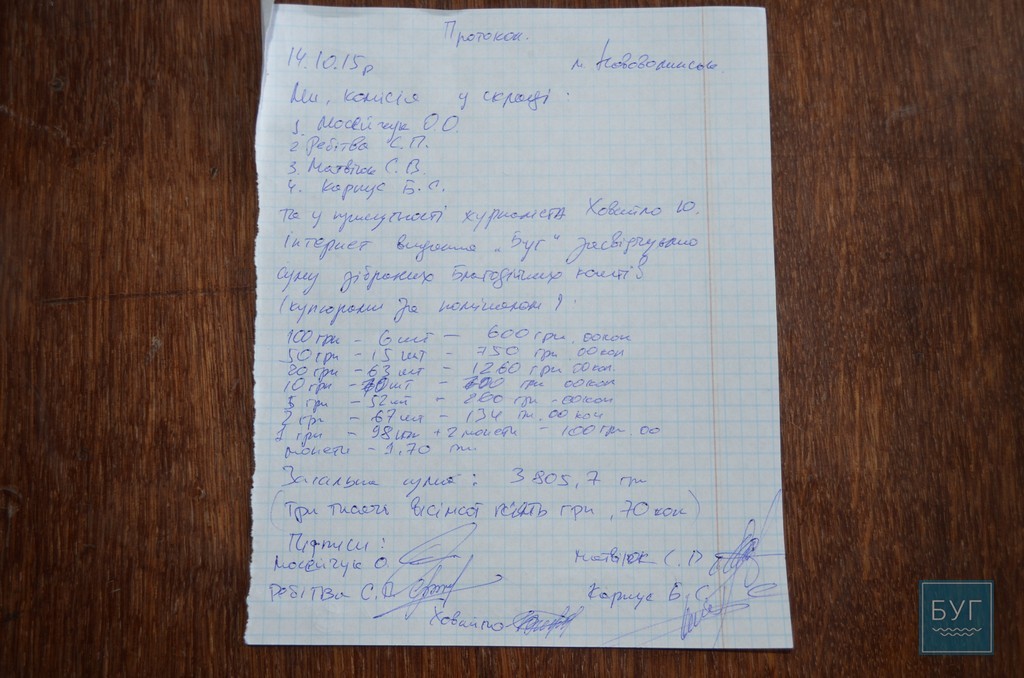 Протокол.
14.10.15р м. Нововолинськ.
Ми, комісія у складі:
1. Мосейчук О.О.
2 Ребітва С.П.
3. Матвіюк С.В.
4. Карпус Б.С.
та у присутності журналіста Ховайло Ю.
інтернет видання „Буг" засвідчуємо
суму зібраних благодійних коштів
(купюрами за номіналом):
100 грн – 6 шт – 600 грн. 00 коп
50 грн – 15 шт – 750 грн 00 коп
20 грн – 63 шт – 1260 грн 00 коп.
10 грн – 70 шт – 700 грн 00 коп
5 грн – 52 шт – 260 грн – 00 коп
2 грн – 67 шт – 134 гн. 00 коп
1 грн – 98 шт + 2 монети – 100 грн. 00
монети – 1,70 грн.
Загальна сума: 3 805,7 грн
(Три тисячі вісімсот п'ять грн, 70 коп)
Підписи:
Мосейчук О. Матвіюк С.В
Ребітва С.П Карпус Б.С.
Ховайло
БУГ